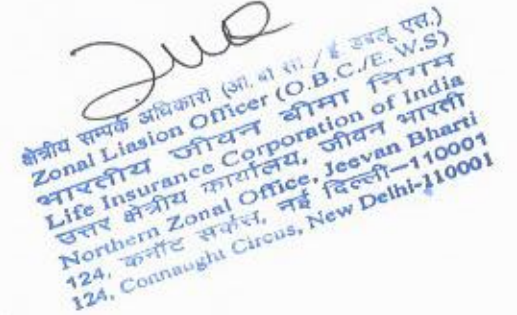 क्षेत्रीय सम्पर्क अधिकारी (ओ. बी सी. / ई. डबलू एस.)
Zonal Liasion Officer (O.B.C./E.W.S)
भारतीय जीवन बीमा निगम
Life Insurance Corporation of India
उत्तर क्षेत्रीय कार्यालय, जीवन भारती
Northern Zonal Office, Jeevan Bharti
124, कनॉट सर्कस, नई दिल्ली–110001
124, Connaught Circus, New Delhi-110001